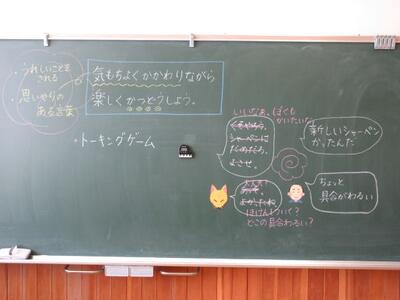 ・うれしいことを
される
・思いやりの
ある言葉
気もちよくかかわりながら
楽しくかつどうしよう。
・トーキングゲーム
いいなぁ。ぼくも
かいたい
よこせ。
新しいシャーペン
かったんだ
ちょっと
具合がわるい
ほけんしついく？
どこの具合わるい？